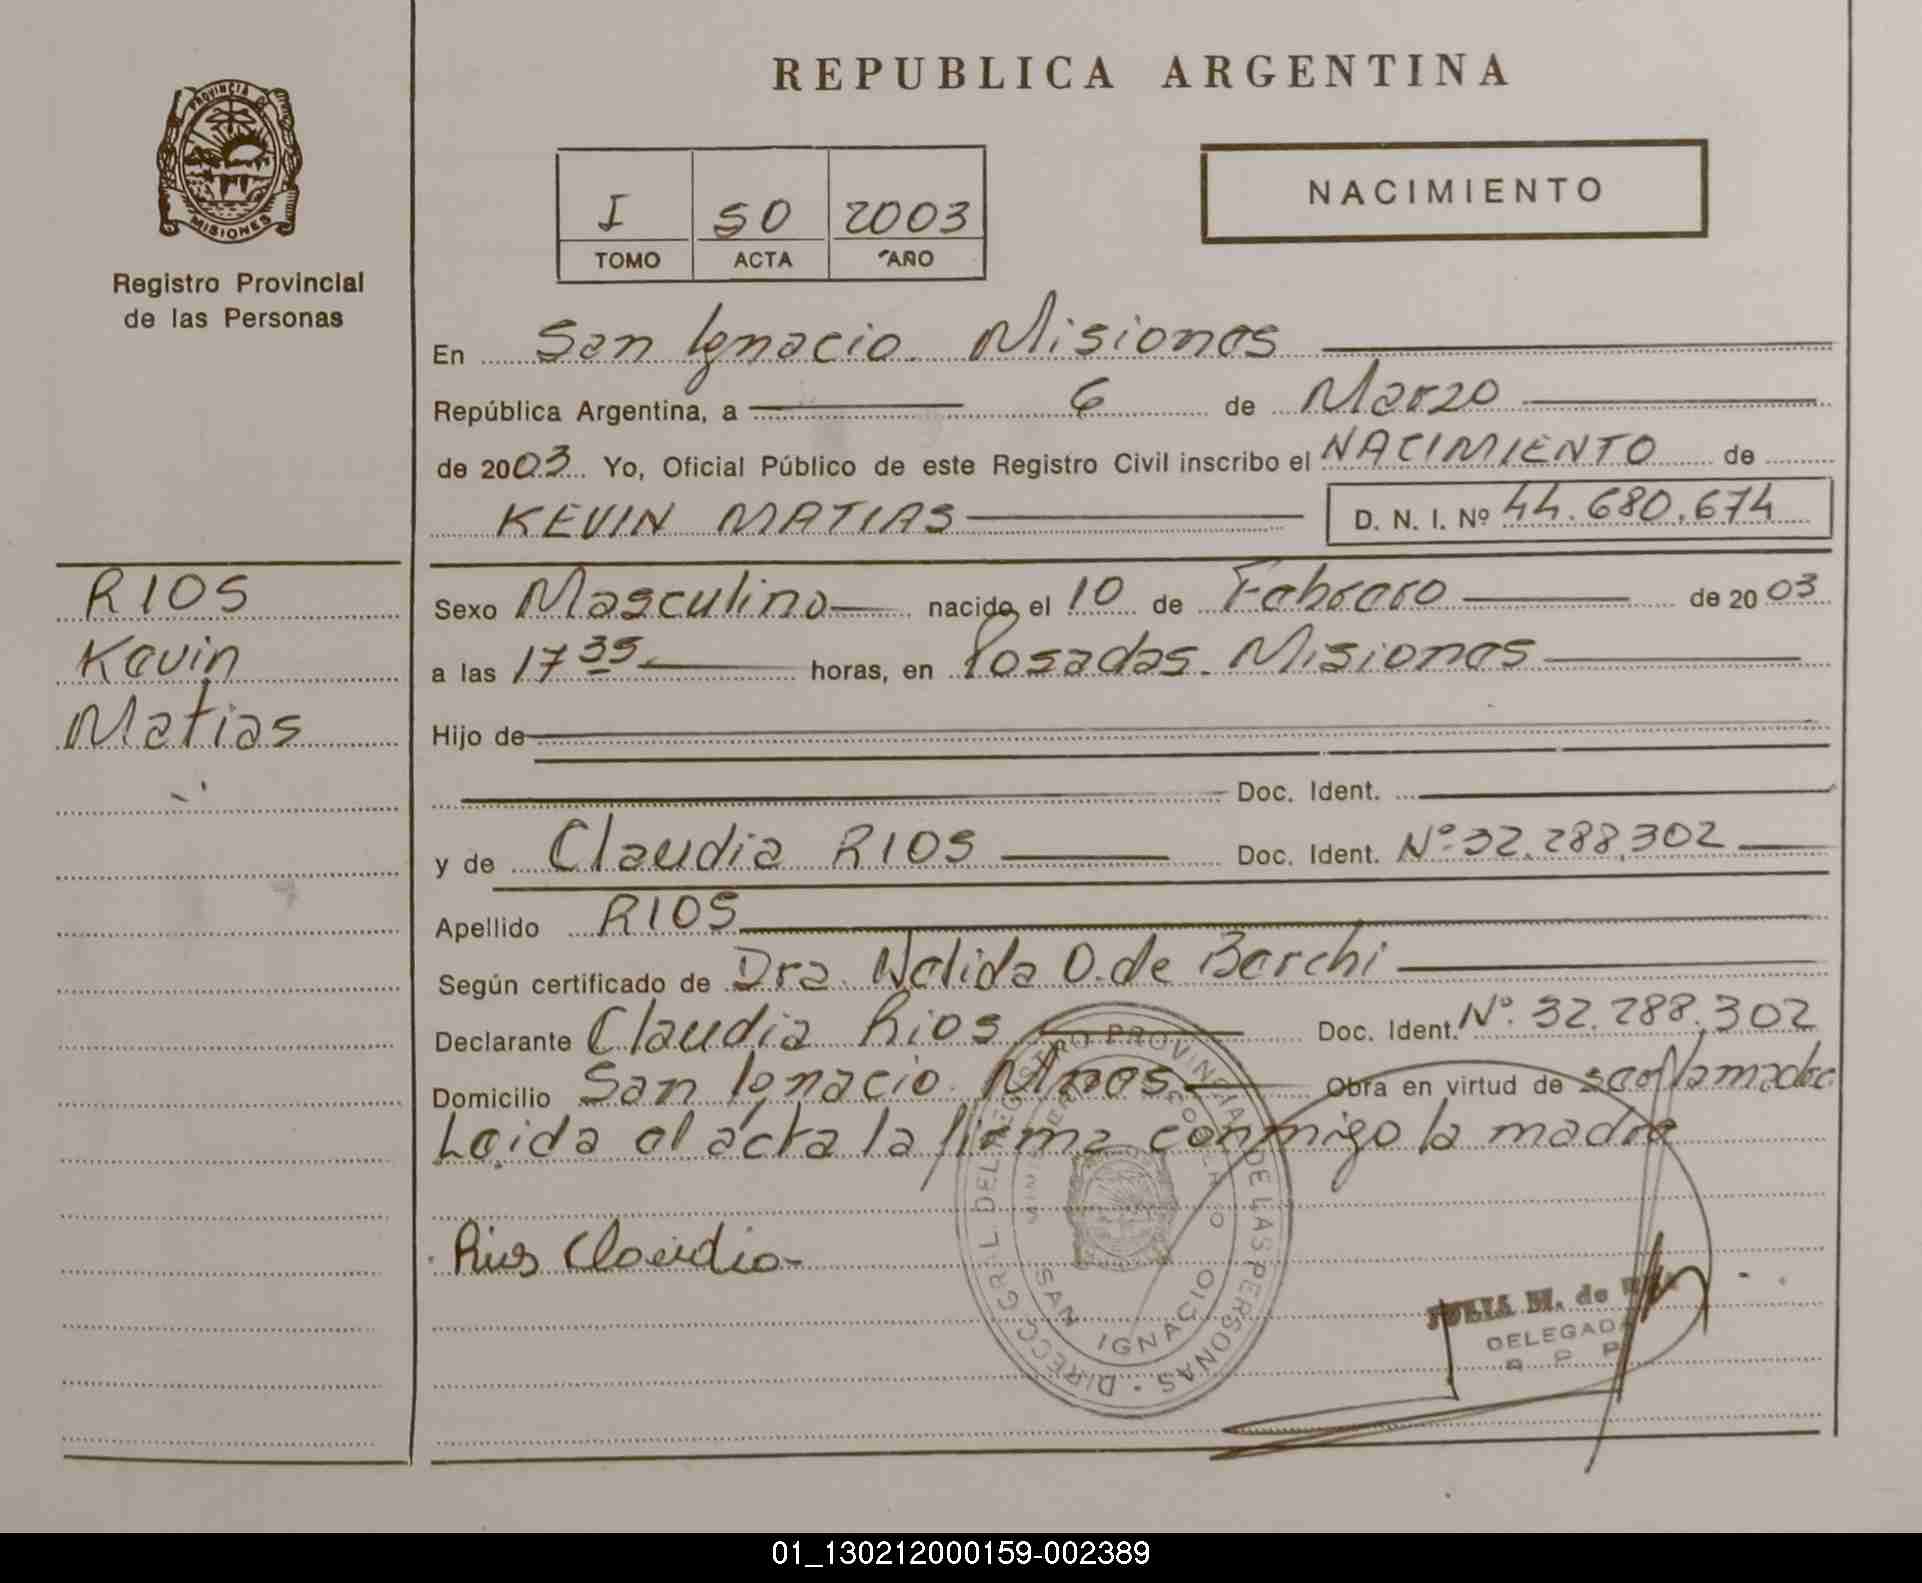 REPUBLICA ARGENTINA
PROVINCIA DE
MISIONES
Registro Provincial
de las Personas
I 50 2003
TOMO ACTA AÑO
NACIMIENTO
En San Ignacio Misiones
República Argentina, a 6 de Marzo
de 2003 Yo, Oficial Público de este Registro Civil inscribo el NACIMIENTO de
KEVIN MATIAS D. N. I. Nº 44.680.674
RIOS
Kevin
Matias
Sexo Masculino nacido el 10 de Febrero de 2003
a las 17 35 horas, en Posadas Misiones
Hijo de
Doc. Ident.
y de Claudia RIOS Doc. Ident. Nº 32.288.302
Apellido RIOS
Según certificado de Dra. Nelida O. de Berchi
Declarante Claudia Rios Doc. Ident. Nº 32.288.302
Domicilio San Ignacio Mnes Obra en virtud de ser la madre
Leida el acta la firma conmigo la madre
Rios Claudia
DIRECC. GRL. DEL REGISTRO PROVINCIAL DE LAS PERSONAS
SAN IGNACIO
JULIA M. de
DELEGADA
R P P
01_130212000159-002389